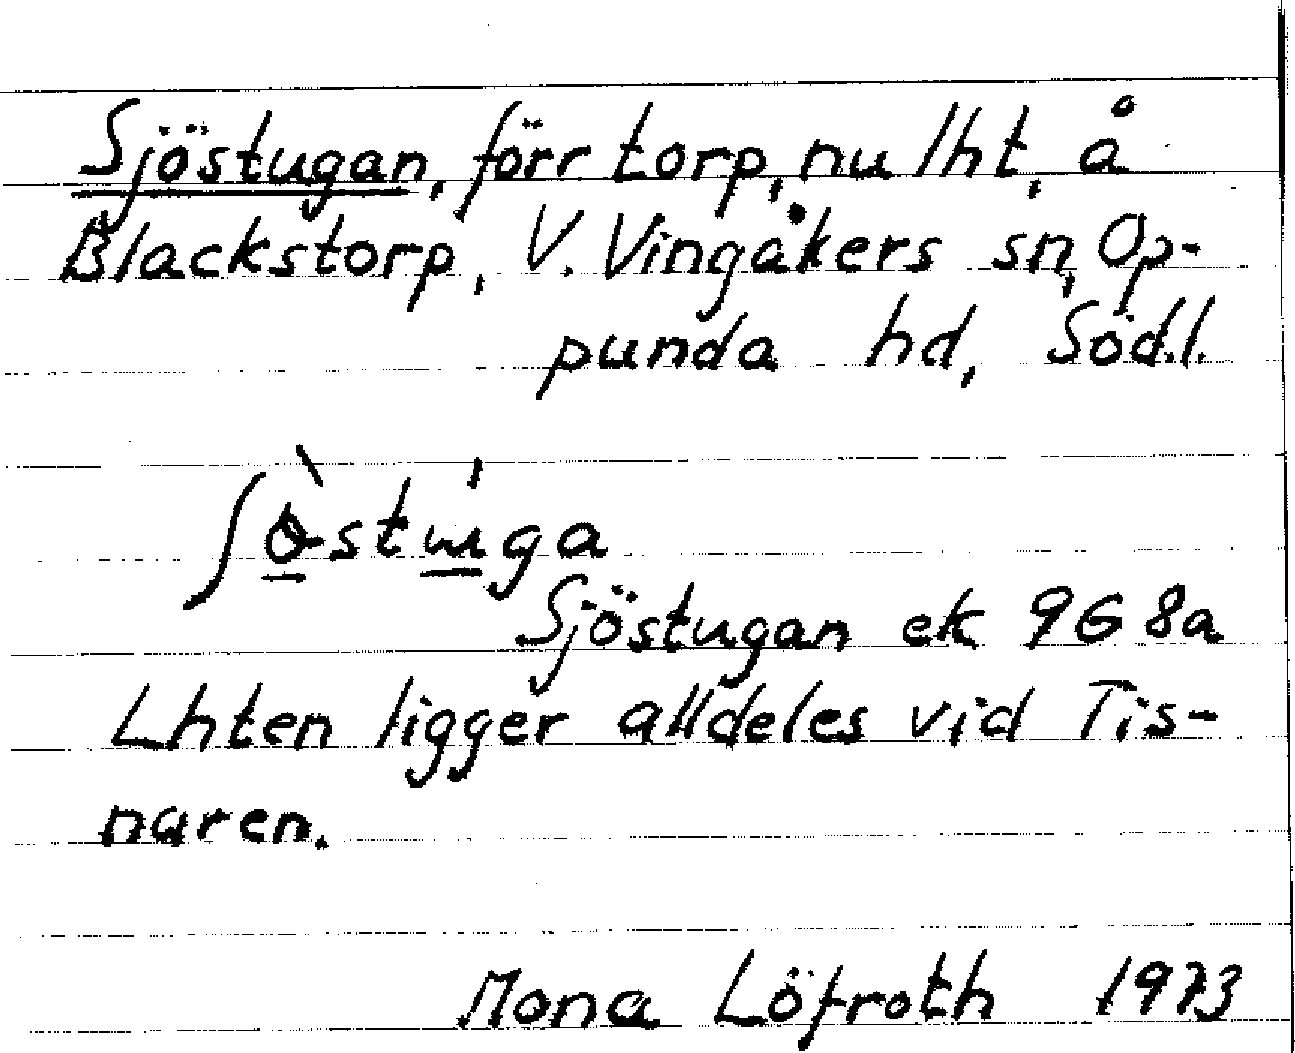 Sjöstugan, förr torp, nu lht, å
Blackstorp, V. Vingåkers sn, Op-
punda hd, Södl.
Sjöstugan ek 9G 8a
Lhten ligger alldeles vid Tis-
naren.
Mona Löfroth 1973